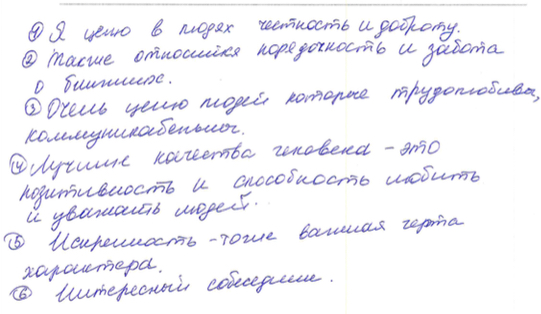 ① Я ценю в людях честность и доброту.
② Также относится порядочность и забота
о ближних.
③ Очень ценю людей которые трудолюбивы,
коммуникабельны.
④ Лучшие качества человека - это
позитивность и способность любить
и уважать людей.
⑤ Искренность - тоже важная черта
характера.
⑥ Интересный собеседник.